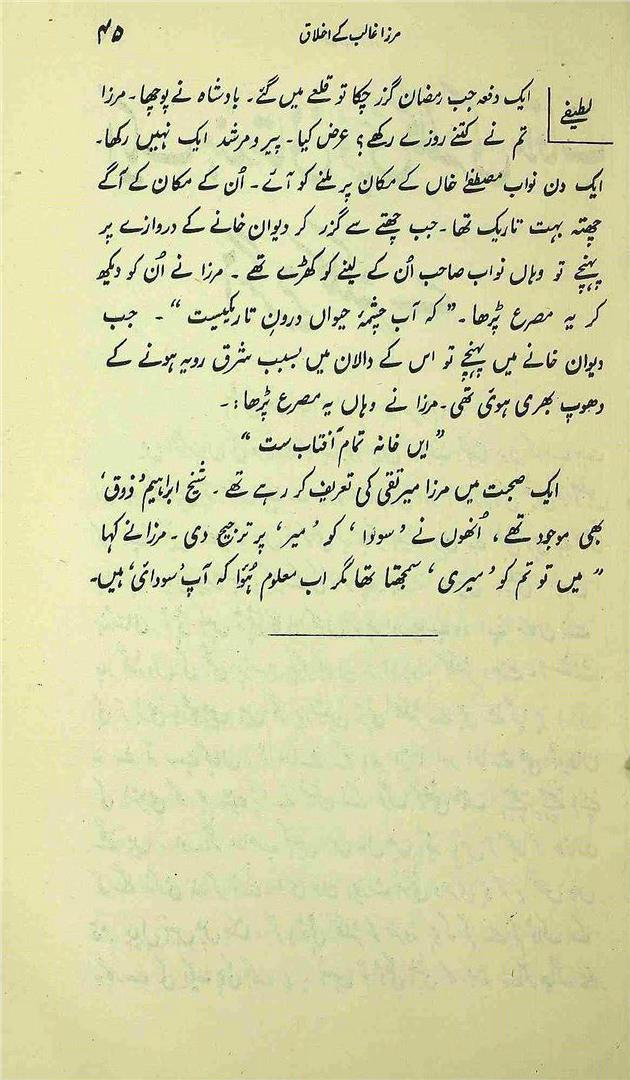 مرزا غالب کے اخلاق ۴۵
لطیفے ایک دفعہ جب رمضان گزر چکا تو قلعے میں گئے۔ بادشاہ نے پوچھا۔ مرزا
تم نے کتنے روزے رکھے؟ عرض کیا۔ پیر و مرشد ایک نہیں رکھا۔
ایک دن نواب مصطفےٰ خاں کے مکان پر ملنے کو آئے۔ اُن کے مکان کے آگے
چھتہ بہت تاریک تھا۔ جب چھتے سے گزر کر دیوان خانے کے دروازے پر
پہنچے تو وہاں نواب صاحب اُن کے لینے کو کھڑے تھے۔ مرزا نے اُن کو دیکھ
کر یہ مصرع پڑھا۔ ”کہ آب چشمۂ حیواں درونِ تاریکیست“۔ جب
دیوان خانے میں پہنچے تو اس کے دالان میں بسبب شرق رویہ ہونے کے
دھوپ بھری ہوئی تھی۔ مرزا نے وہاں یہ مصرع پڑھا:۔
”ایں خانہ تمام آفتاب ست“
ایک صحبت میں مرزا میر تقی کی تعریف کر رہے تھے۔ شیخ ابراہیم ’ذوق‘
بھی موجود تھے، اُنھوں نے ’سودا‘ کو ’میر‘ پر ترجیح دی۔ مرزا نے کہا
”میں تو تم کو ’میری‘ سمجھتا تھا مگر اب معلوم ہُوا کہ آپ ’سودائی‘ ہیں۔